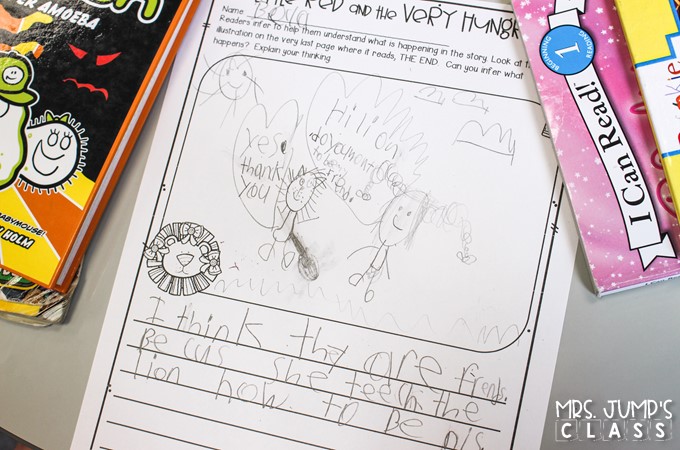 AMOEBA
BABYMOUSE!
HOLM
RED AND THE VERY HUNGR
Name
Readers infer to help them understand what is happening in the story. Look at t
illustration on the very last page where it reads, THE END. Can you infer what
happens? Explain your thinking.
yes
thank
YOU
Hi lion
do you want
to be
friend
I think thy are frends
Be cus she teech the
lion how to Be
BEGINNING
READING
1
I Can Read!
MRS. JUMP'S
CLASS